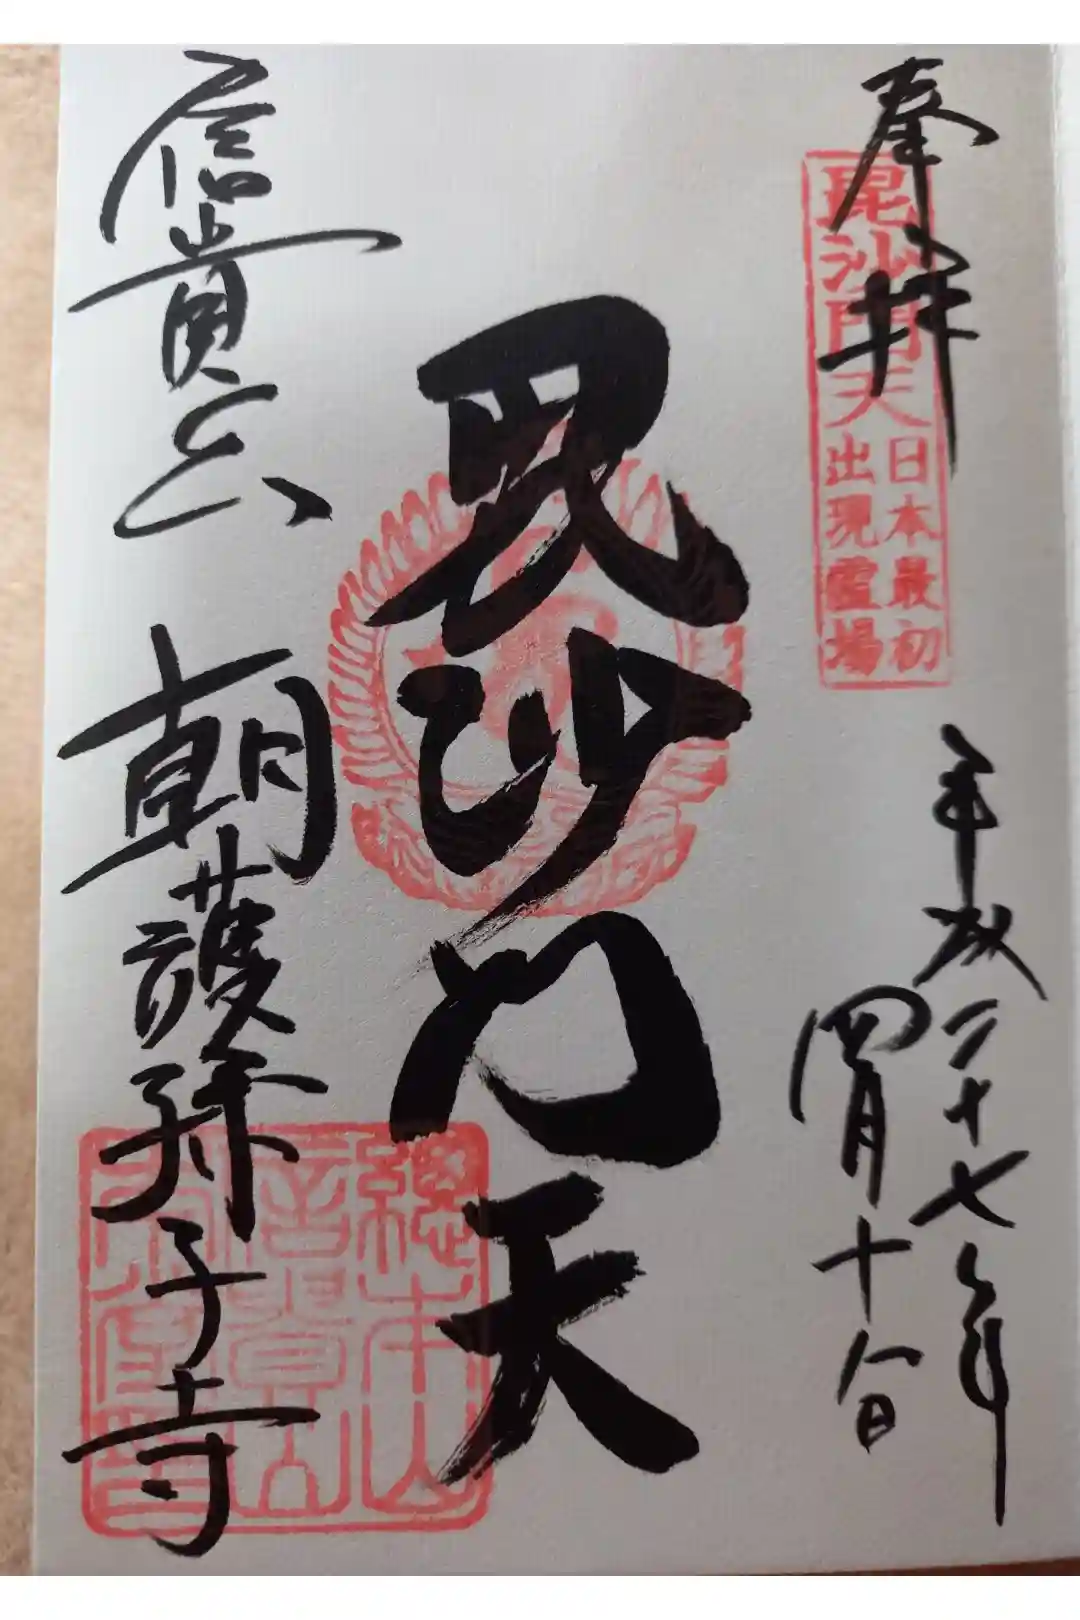 奉拝
毘沙門天
日本最初
出現霊場
平成二十七年
四月十八日
毘沙門天
信貴山
朝護孫子寺
総本山
信貴山